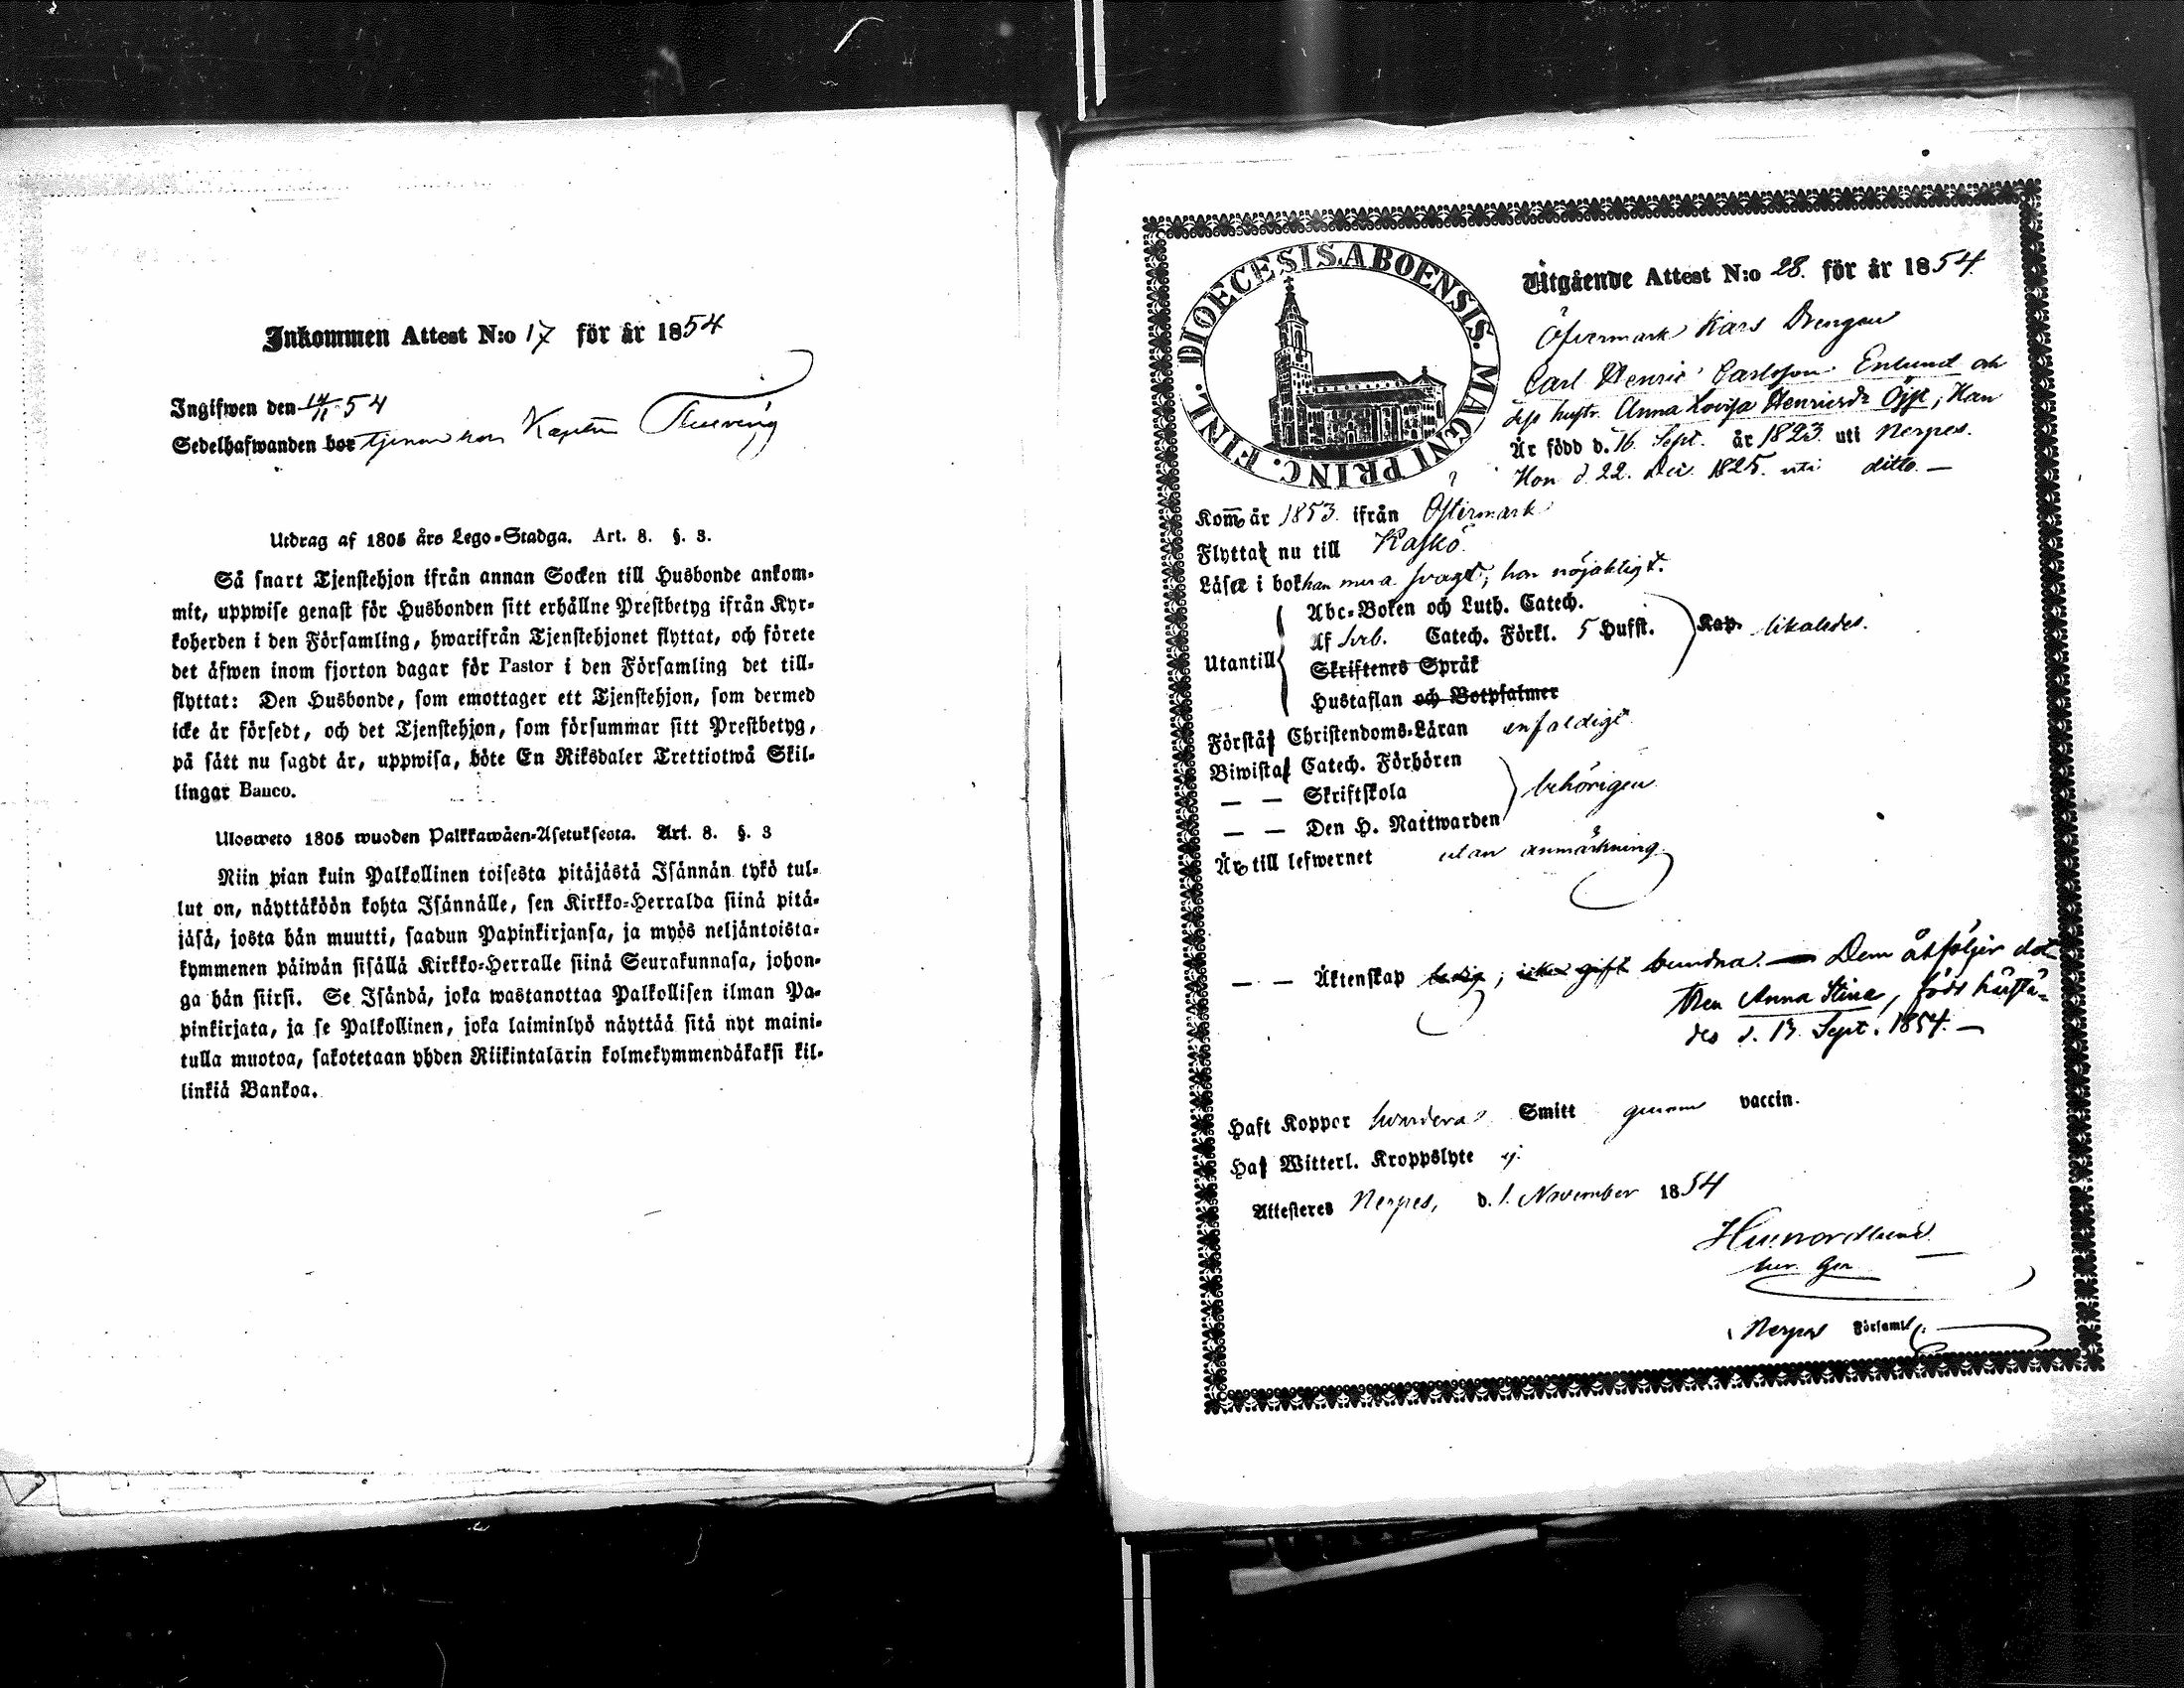 Inkommen Attest N:o 17 för år 1854
Ingifwen den 14/11 54
Sedelhafwanden bor tjenar hos Kapten
Utdrag af 1805 års Lego-Stadga. Art. 8. §. 3.
Så snart Tjenstehjon ifrån annan Socken till Husbonde ankom-
mit, uppwise genast för Husbonden sitt erhållne Prestbetyg ifrån Kyr-
koherden i den Församling, hwarifrån Tjenstehjonet flyttat, och förete
det äfwen inom fjorton dagar för Pastor i den Församling det till-
flyttat: Den Husbonde, som emottager ett Tjenstehjon, som dermed
icke är försedt, och det Tjenstehjon, som försummar sitt Prestbetyg,
på sätt nu sagdt är, uppwisa, böte En Riksdaler Trettiotwå Skil-
lingar Banco.
Ulosweto 1805 wuoden Palkkawäen-Asetuksesta. Art. 8. §. 3
Niin pian kuin Palkollinen toisesta pitäjästä Isännän tykö tul-
lut on, näyttäköön kohta Isännälle, sen Kirkko-Herralda siinä pitä-
jäsä, josta hän muutti, saadun Papinkirjansa, ja myös neljäntoista-
kymmenen päiwän sisällä Kirkko-Herralle siinä Seurakunnasa, johon-
ga hän siirsi. Se Isändä, joka wastanottaa Palkollisen ilman Pa-
pinkirjata, ja se Palkollinen, joka laiminlyö näyttää sitä nyt maini-
tulla muotoa, sakotetaan yhden Riikintalärin kolmekymmendäkaksi kil-
linkiä Bankoa.
DIOECESIS. ABOENSIS. MAGNI PRINC. FINL.
Utgående Attest N:o 28. för år 1854
Öfvermark Kars Drengen
Carl Henric Carlsson Enlund och
dess hustr. Anna Lovisa Henricsdr Öjst, Han
Är född d. 16 Sept. år 1823. uti Nerpes.
Hon d. 22. Dec. 1825. uti ditto. —
Kom̄ år 1853. ifrån Östermark
Flyttat nu till Kaskö.
Läser i bok han mera svagt, hon nöjaktigt.
Abc-Boken och Luth. Catech.
Af Svb. Catech. Förkl. 5 Hufst. Kap. likaledes.
Utantill
Skriftenes Språk
Hustaflan och Botpsalmer
Förstår Christendoms-Läran enfaldigt
Biwistat Catech. Förhören
— — Skriftskola behörigen
— — Den H. Nattwarden
Är till lefwernet utan anmärkning.
— — Äktenskap ledig; icke gift bundna. — Dem åtföljer dot-
tren Anna Stina, född härstä-
des d. 13 Sept. 1854. —
Haft Koppor hvardera Smitt genom vaccin.
Har Witterl. Kroppslyte ej.
Attesteras Nerpes, d. 1. November 1854
Nerpes Församl.